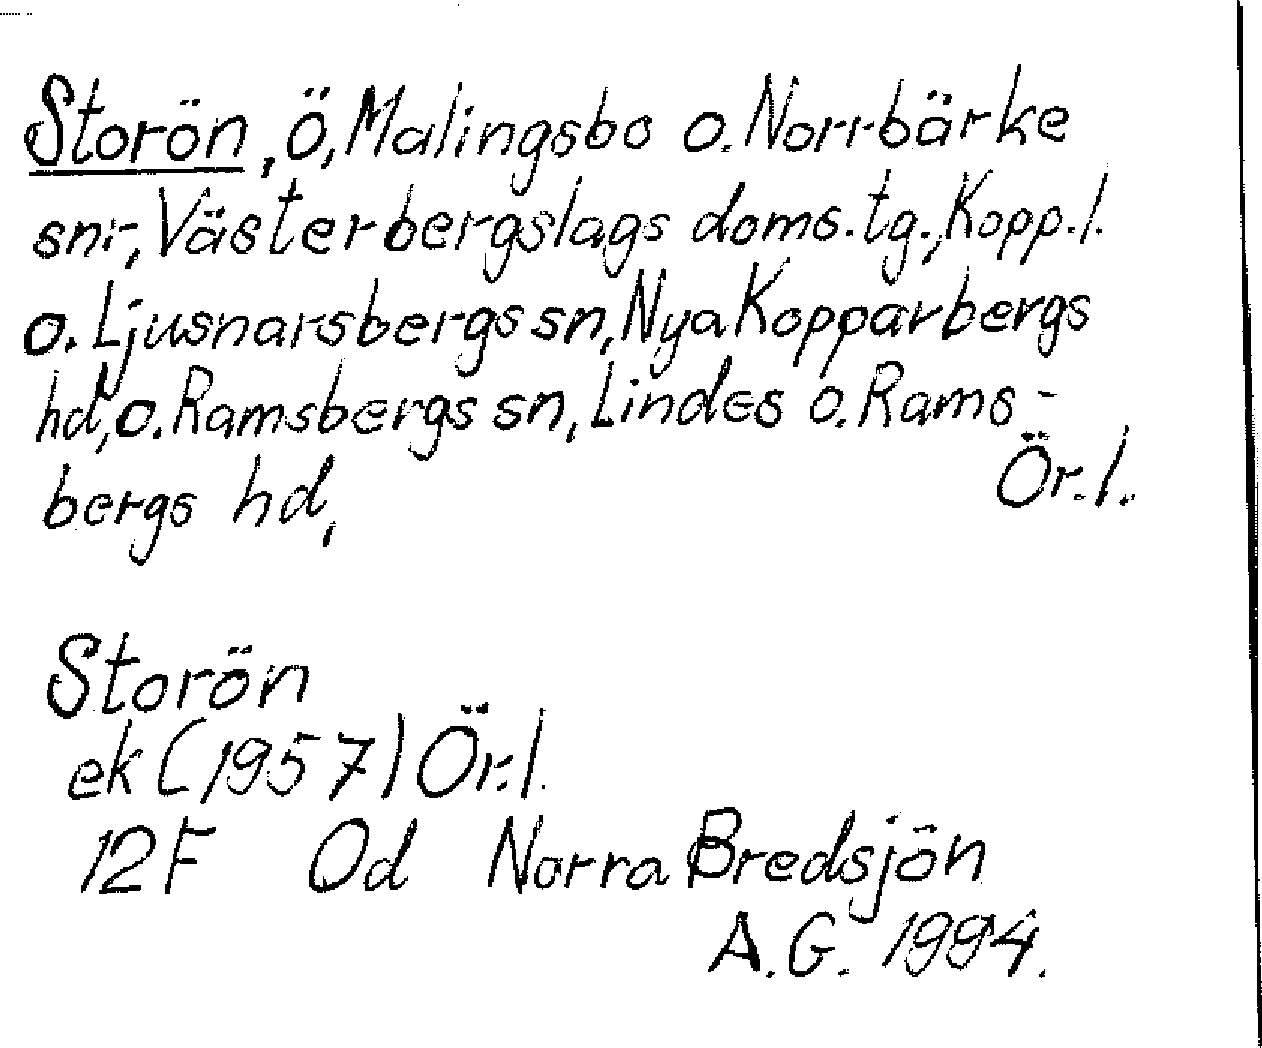 Storön, Ö, Malingsbo o. Norrbärke
snr, Västerbergslags doms. tg., Kopp. l.
o. Ljusnarsbergs sn, Nya Kopparbergs
hd, o. Ramsbergs sn, Lindes o. Rams-
bergs hd, Ör. l.
Storön
ek (1957) Ör. l.
12F 0d Norra Bredsjön
A.G. 1994.